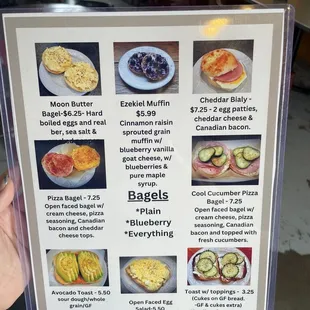 Moon Butter
Bagel-$6.25- Hard
boiled eggs and real
ber, sea salt &
Ezekiel Muffin
$5.99
Cinnamon raisin
sprouted grain
muffin w/
blueberry vanilla
goat cheese, w/
blueberries &
pure maple
syrup.
Cheddar Bialy -
$7.25 - 2 egg patties,
cheddar cheese &
Canadian bacon.
Pizza Bagel - 7.25
Open faced bagel w/
cream cheese, pizza
seasoning, Canadian
bacon and cheddar
cheese tops.
Bagels
*Plain
*Blueberry
*Everything
Cool Cucumber Pizza
Bagel - 7.25
Open faced bagel w/
cream cheese, pizza
seasoning, Canadian
bacon and topped with
fresh cucumbers.
Avocado Toast - 5.50
sour dough/whole
grain/GF
Open Faced Egg
Salad- 5.50
Toast w/ toppings - 3.25
(Cukes on GF bread.
-GF & cukes extra)